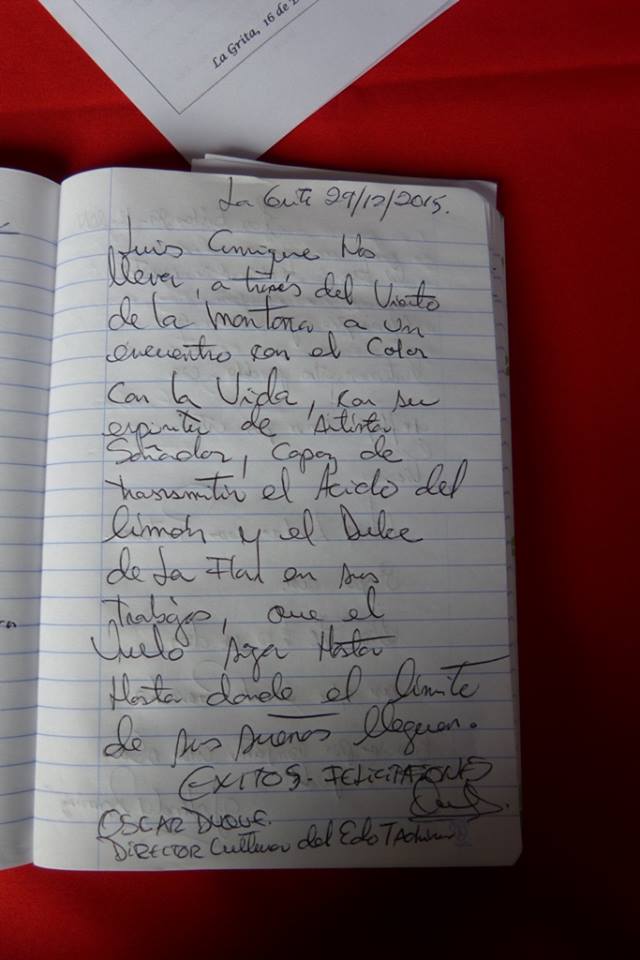 La Grita, 16 de 2
La Grita 29/12/2015.
Luis Cmigue Nos
lleva, a través del Viento
de la montaña, a un
encuentro con el Color
con la Vida, con su
espiritu de Artista
Soñador, Capaz de
transmitir el Acido del
limón y el Dulce
de La Flor en sus
trabajos, que el
Vuelo siga Hasta
Hasta donde el limite
de sus suenos lleguen.
EXITOS. FELICITACIONES
OSCAR DUQUE.
DIRECTOR Cultura del Edo TAchira